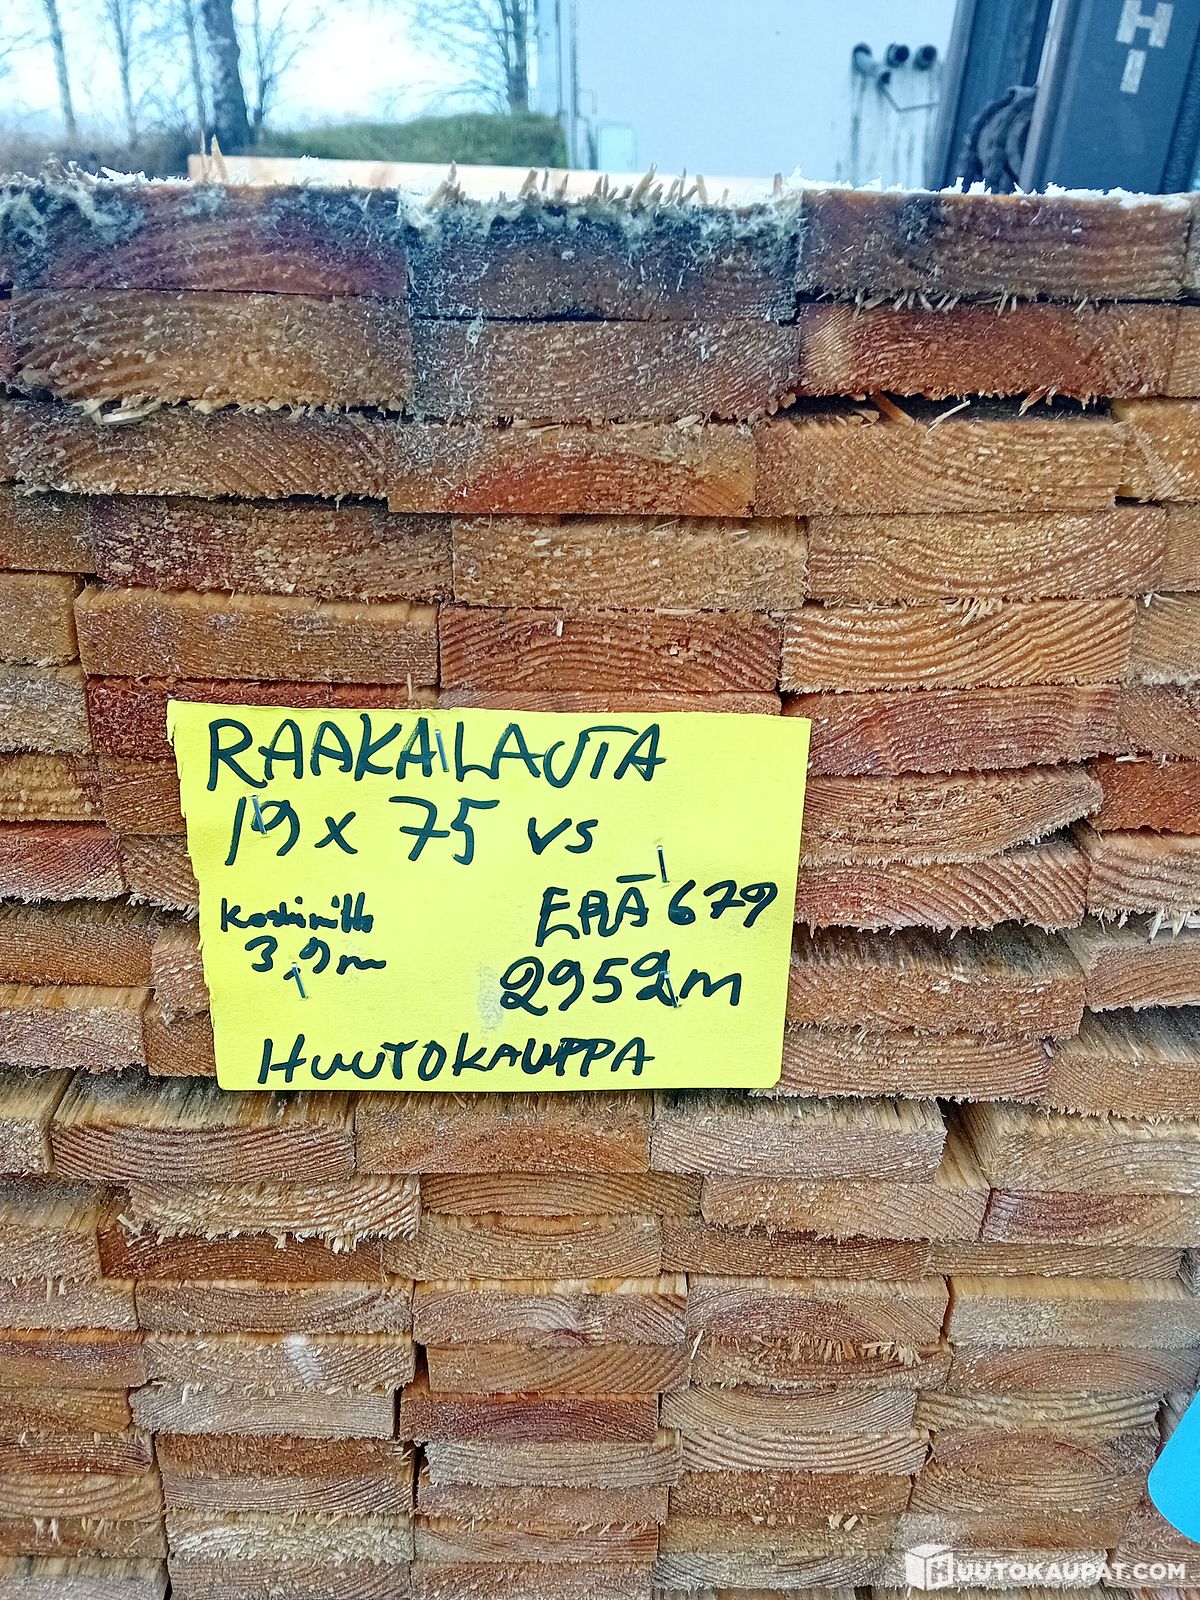 HI
RAAKALAUTA
19 x 75 vs
Keskimitta
3,9 m
ERÄ 679
2952 m
HUUTOKAUPPA
HUUTOKAUPAT.COM